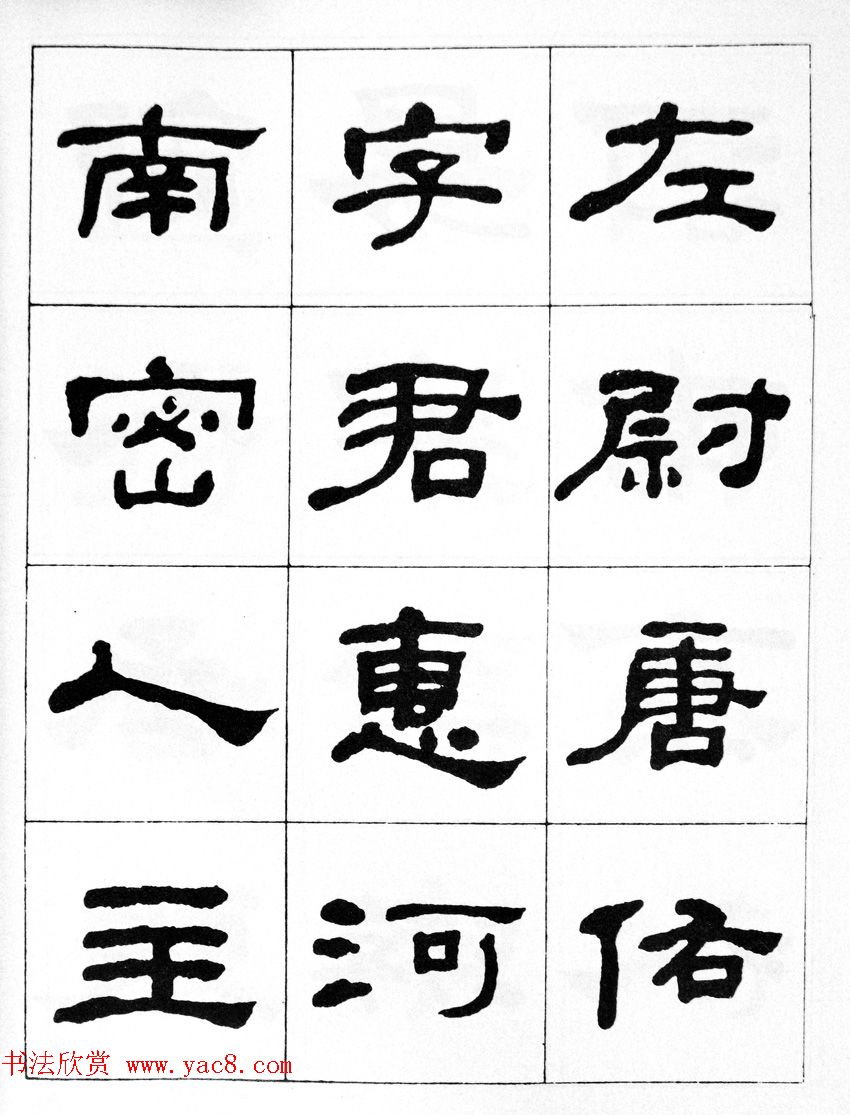 左尉唐佑
字君惠河
南密人主
书法欣赏 www.yac8.com